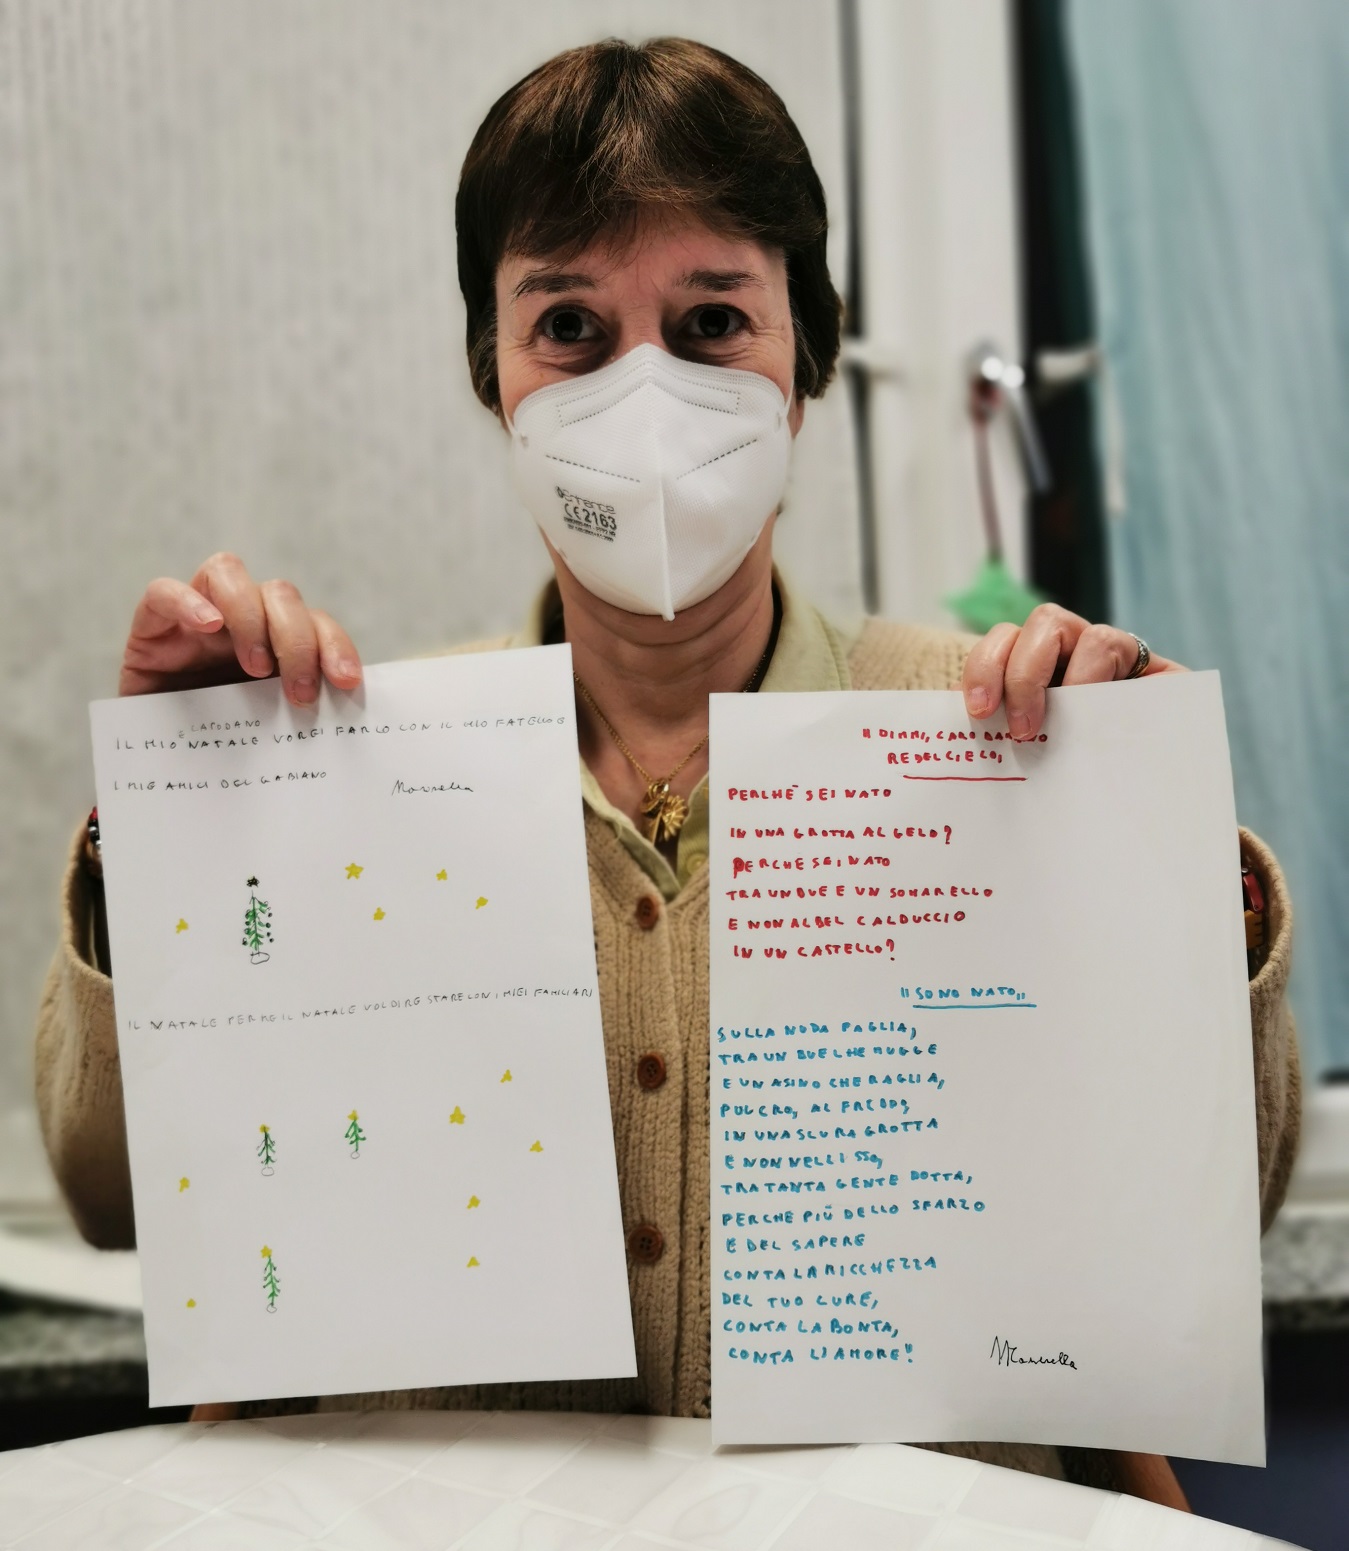 E CAPODANO
IL MIO NATALE VORGI FARLO CON IL MIO FATELLO E
I MIE AMICI DEL GABIANO
IL NATALE PER ME IL NATALE VOL DIRE STARE CON I MIEI FAMILIARI
"DIMMI, CARO
RE DEL CIELO,
PERCHÈ SEI NATO
IN UNA GROTTA AL GELO?
PERCHE SEI NATO
TRA UN BUE E UN SOMARELLO
E NON AL BEL CALDUCCIO
IN UN CASTELLO?
"SONO NATO,,
SULLA NUDA PAGLIA,
TRA UN BUE CHE MUGGE
E UN ASINO CHE RAGLIA,
AL FREDDO,
IN UNA SCURA GROTTA
E NON NELL
TRA TANTA GENTE DOTTA,
PERCHE PIÙ DELLO SFARZO
E DEL SAPERE
CONTA LA RICCHEZZA
DEL TUO CURE,
CONTA LA BONTA,
CONTA L'AMORE!"
CE 2163